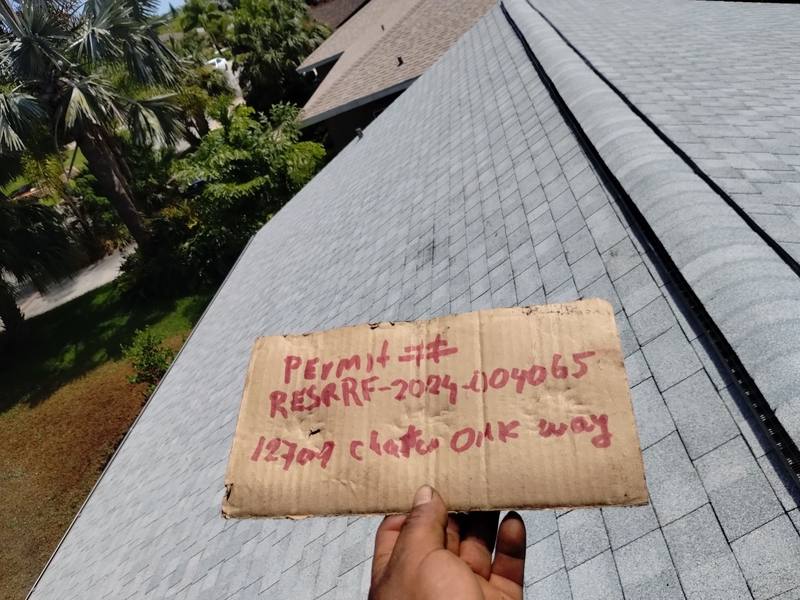 PErmit #
RESRRF-2024-004065
12709 OAK way